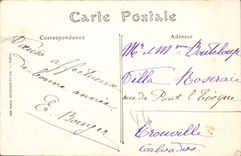 Carte Postale
Correspondance
Adresse
Vœux affectueux
de bonne année
E. Bouger
Mr et Mme Bouteloup
Villa Roseraie
rue de Pont l'Evêque
Trouville
Calvados